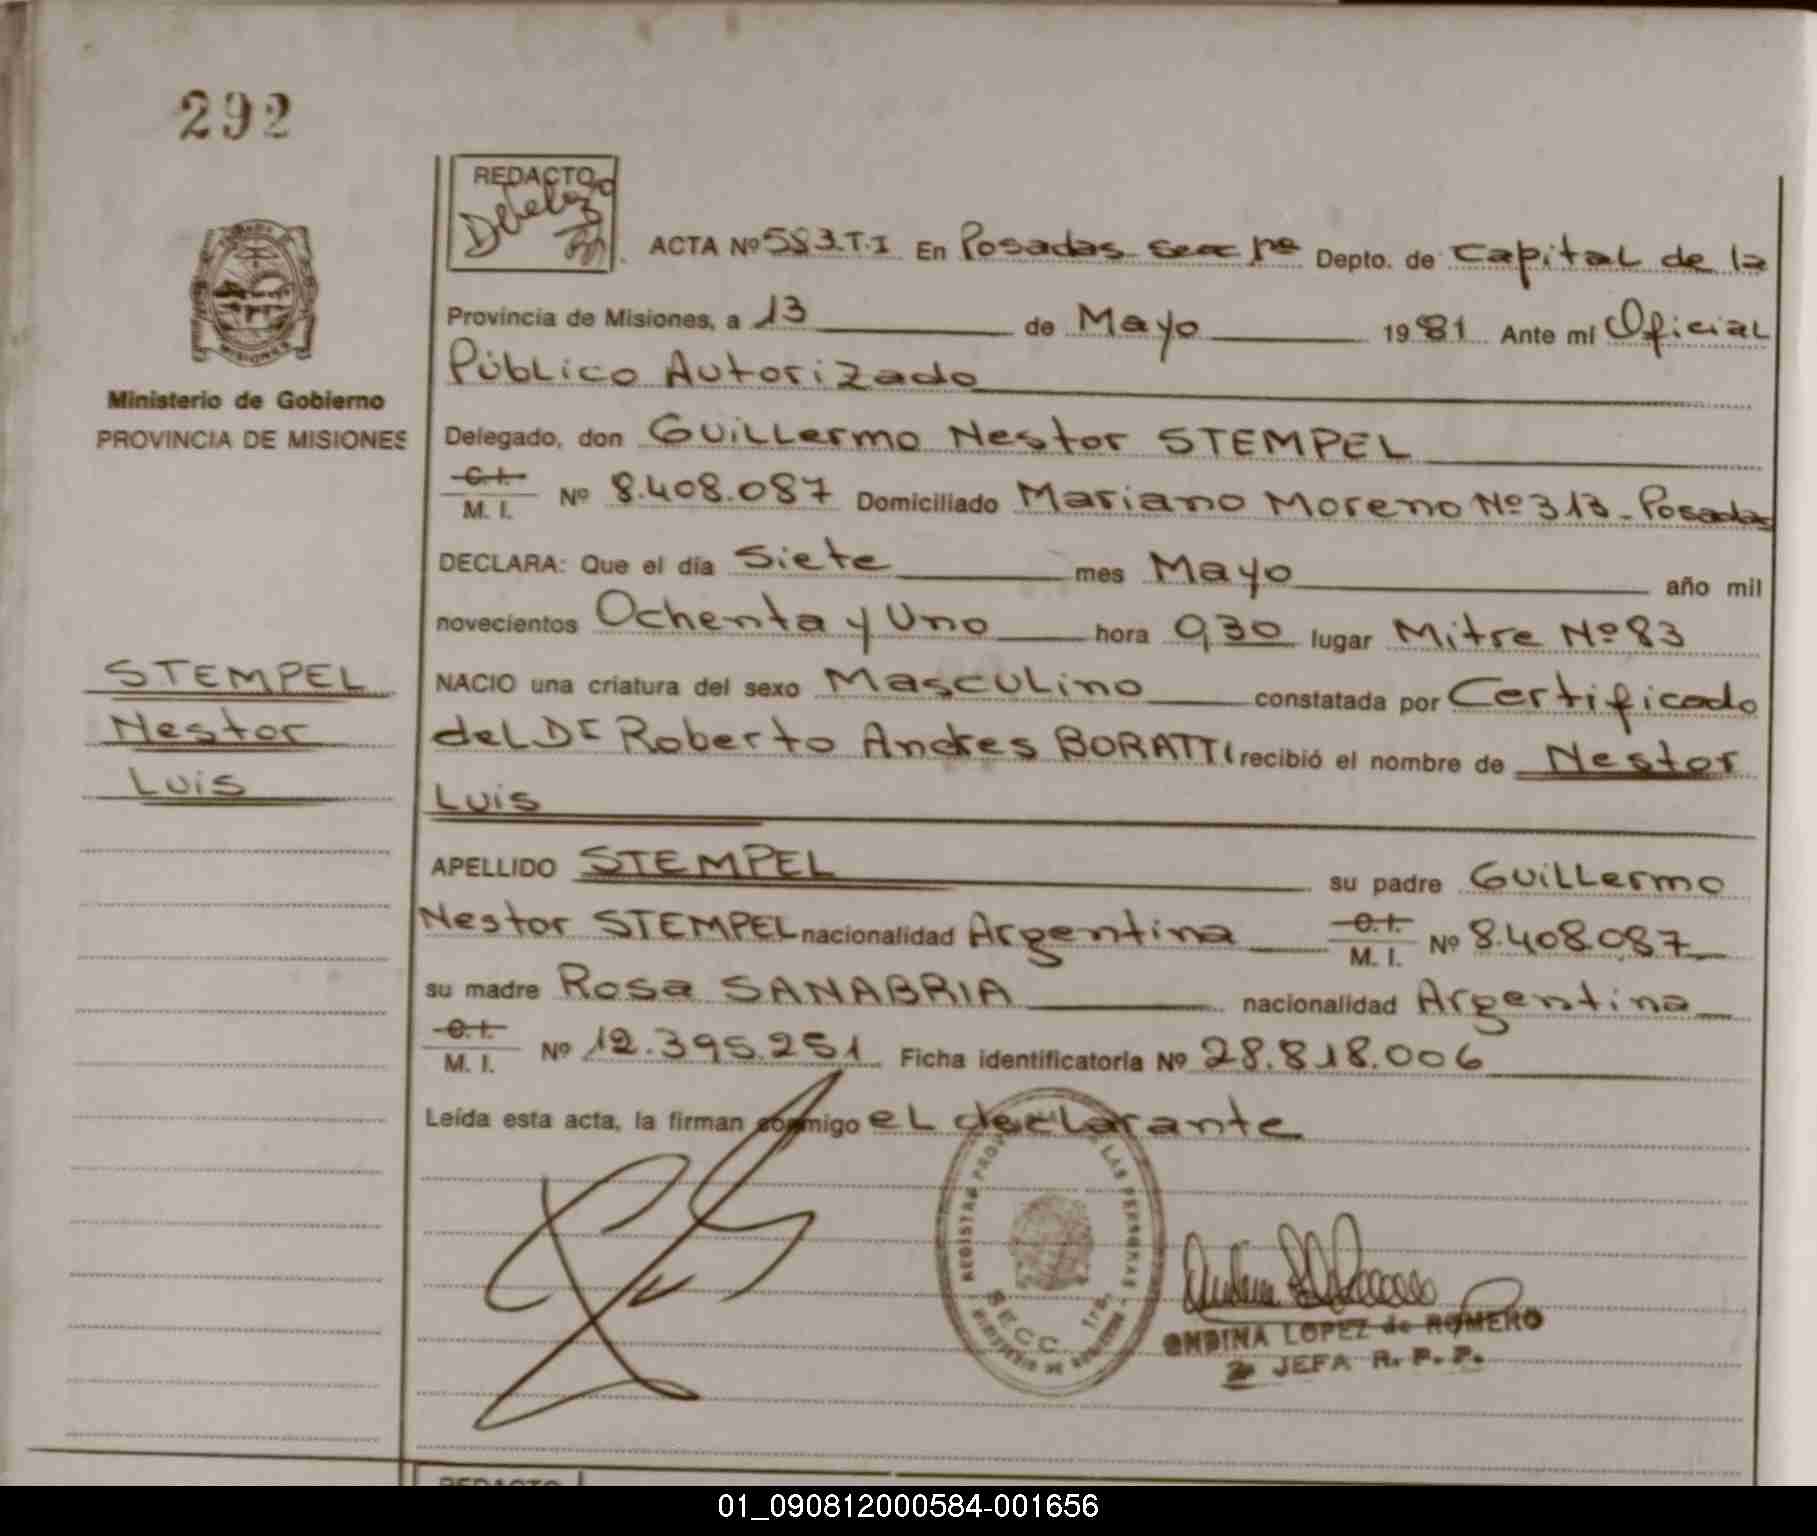 292
REDACTO
ACTA Nº 583.T.I En Posadas secc 1ra Depto. de Capital de la
Provincia de Misiones, a 13 de Mayo 1981 Ante mi Oficial
Público Autorizado
MISIONES
Ministerio de Gobierno
PROVINCIA DE MISIONES
Delegado, don Guillermo Nestor STEMPEL
C.I.
M. I. Nº 8.408.087 Domiciliado Mariano Moreno Nº 313 - Posadas
DECLARA: Que el día Siete mes Mayo año mil
novecientos Ochenta y Uno hora 9,30 lugar Mitre Nº 83
STEMPEL
Nestor
Luis
NACIO una criatura del sexo Masculino constatada por Certificado
del Dr Roberto Andres BORATTI recibió el nombre de Nestor
Luis
APELLIDO STEMPEL su padre Guillermo
Nestor STEMPEL nacionalidad Argentina C.I.
M. I. Nº 8.408.087
su madre Rosa SANABRIA nacionalidad Argentina
C.I.
M. I. Nº 12.395.251 Ficha identificatoria Nº 28.818.006
Leída esta acta, la firman conmigo el declarante
LAS PERSONAS
SECC. 1ra.
ONDINA LOPEZ de ROMERO
JEFA R. P. P.
REDACTO
01_090812000584-001656